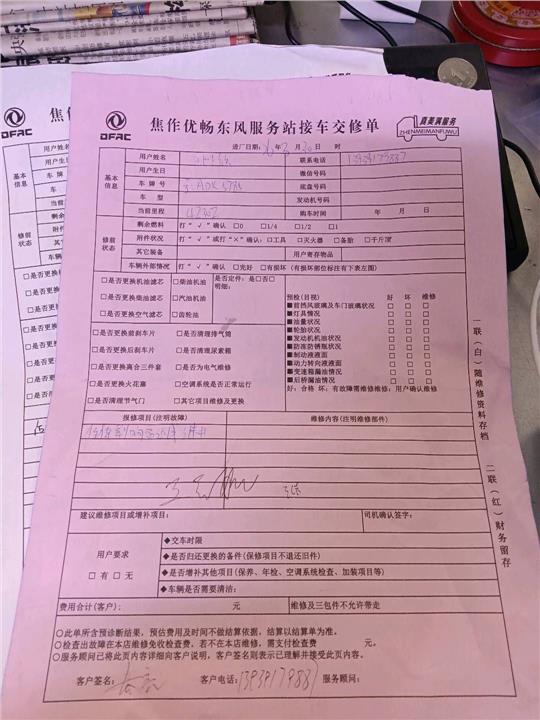 DFAC
焦作优畅东风服务站接车交修单
真美满服务
ZHENMEIMANFUWU
进厂日期: 年 月 30 日 时
基本信息
用户姓名 联系电话
用户生日 微信号码
车牌号 底盘号码
车型 发动机号码
当前里程 购车时间 年 月 日
修前状态
剩余燃料 打“√”确认 □0 □1/4 □1/2 □1
附件状况 打“√”或打“×”确认：□工具 □灭火器 □备胎 □千斤顶
其它装备 用户寄存物品
车辆外部情况 打“√”确认 □完好 □有损坏（有损坏部位标注有下表左图）
□是否更换机油滤芯 □柴油机油 是否定件：是□否□
□是否更换柴油滤芯 □汽油机油 明细：
□是否更换空气滤芯 □齿轮油
预检(目视) 好 坏 维修
■前挡风玻璃及车门玻璃状况 □ □ □
■灯具情况 □ □ □
■油量状况 □ □ □
■轮胎状况 □ □ □
■发动机机油状况 □ □ □
■防冻防锈瓶状况 □ □ □
■制动液液面 □ □ □
■动力转向液液面 □ □ □
■变速箱漏油情况 □ □ □
■后桥漏油情况 □ □ □
好：合格 坏：有故障需维修维修：用户确认维修
□是否更换前刹车片 □是否清理排气筒
□是否更换后刹车片 □是否清理尿素箱
□是否更换离合三件套 □是否为电气维修
□是否更换火花塞 □空调系统是否正常运行
□是否清理节气门 □其它项目维修及更换
报修项目(注明故障) 维修内容(注明维修部件)
建议维修项目或增补项目: 司机确认签字:
用户要求
□有 □无
◆交车时限
◆是否归还更换的备件(保修项目不退还旧件)
◆是否增补其他项目(保养、年检、空调系统检查、加装项目等)
◆车辆是否需要清洁:
费用合计(客户): 元 维修及三包件不允许带走
○此单所含预诊断结果，预估费用及时间不做结算依据，结算以结算单为准。
○检查出故障在本店维修免收检查费，若不在本店维修，需支付检查费 元。
○服务顾问已将此页内容详细向客户说明，客户签名则表示已理解并接受此页内容。
客户签名: 客户电话: 服务顾问:
一联（白）随维修资料存档
二联（红）财务留存